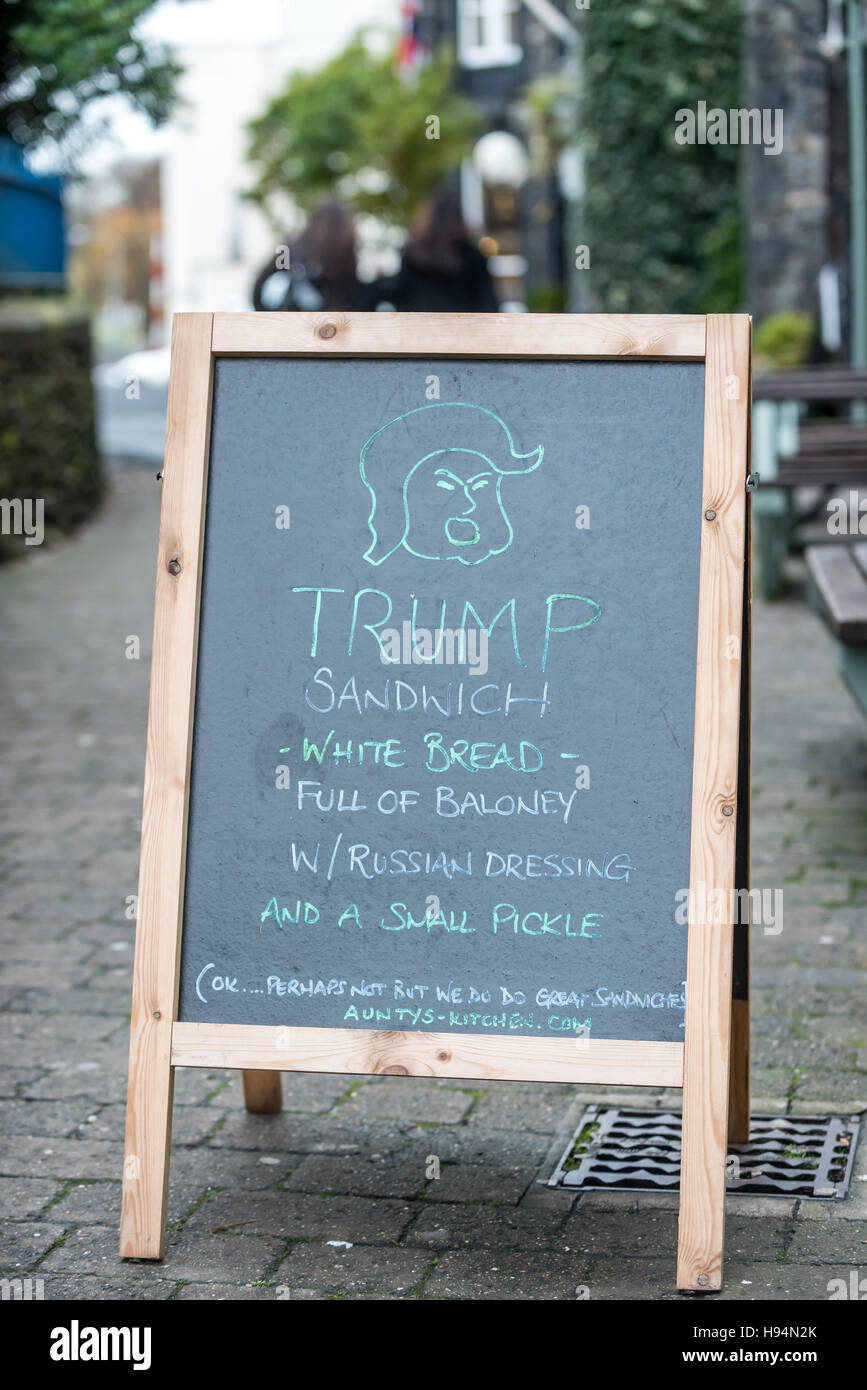 TRUMP
SANDWICH
- WHITE BREAD -
FULL OF BALONEY
W/RUSSIAN DRESSING
AND A SMALL PICKLE
(OK....PERHAPS NOT BUT WE DO DO GREAT SANDWICHES)
AUNTYS-KITCHEN.COM
a alamy stock photo
H94N2K
www.alamy.com